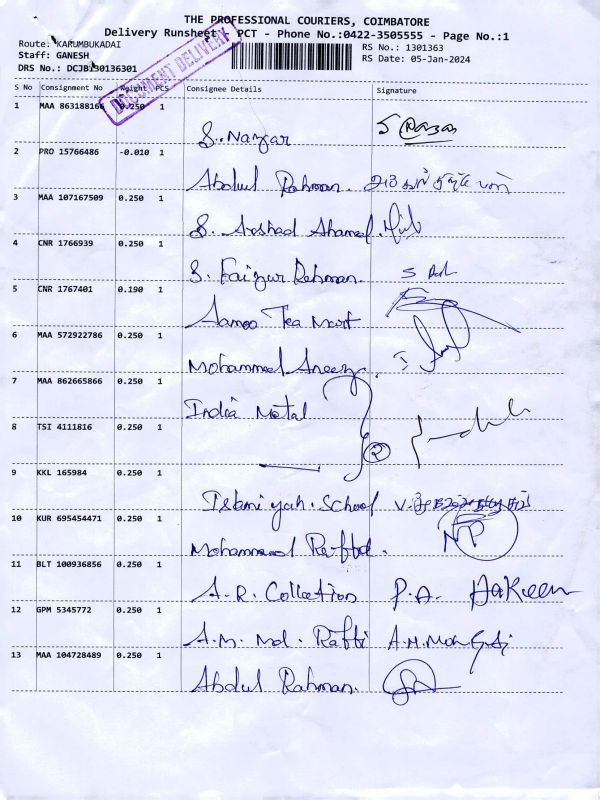 THE PROFESSIONAL COURIERS, COIMBATORE
Delivery Runsheet - PCT - Phone No.:0422-3505555 - Page No.:1
Route: KARUMBUKADAI
RS No.: 1301363
Staff: GANESH
RS Date: 05-Jan-2024
DRS No.: DCJB130136301
DOCUMENT DELIVERY
S No Consignment No Weight PCS Consignee Details Signature
1 MAA 863188166 0.250 1
S. Nazar
2 PRO 15766486 -0.010 1
Abdul Rahman.
3 MAA 107167509 0.250 1
S. Arshad Ahamed.
4 CNR 1766939 0.250 1
S. Faizur Rehman.
5 CNR 1767401 0.190 1
Aamoo Tea Mart
6 MAA 572922786 0.250 1
Mohammed Aneez.
7 MAA 862665866 0.250 1
India Metal
8 TSI 4111816 0.250 1
2
9 KKL 165984 0.250 1
Islamiyah. School
10 KUR 695454471 0.250 1
Mohammed Raffed. NP
11 BLT 100936856 0.250 1
A. R. Collection P. A. Hakeem
12 GPM 5345772 0.250 1
A. M. Md. Raffi
13 MAA 104728489 0.250 1
Abdul Rahman.